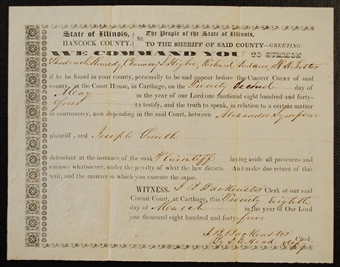 State of Illinois, } ss. The People of the State of Illinois,
HANCOCK COUNTY. TO THE SHERIFF OF SAID COUNTY—GREETING:
WE COMMAND YOU TO SUMMON
Chauncey L. Higbee,
if to be found in your county, personally to be and appear before the CIRCUIT COURT of said
county, at the Court House, in Carthage, on the Twenty Second day of
May in the year of our Lord one thousand eight hundred and forty-
four to testify, and the truth to speak, in relation to a certain matter
in controversy, now depending in the said Court, between Alexander Sympson
plaintiff, and Joseph Smith
defendant at the instance of the said Plaintiff laying aside all pretences and
excuses whatsoever, under the penalty of what the law directs. And make due return of this
writ, and the manner in which you execute the same.
WITNESS, J B Backenstos Clerk of our said
Circuit Court, at Carthage, this Twenty eighth
day of March in the year of Our Lord
one thousand eight hundred and forty-four
J B Backenstos Clerk